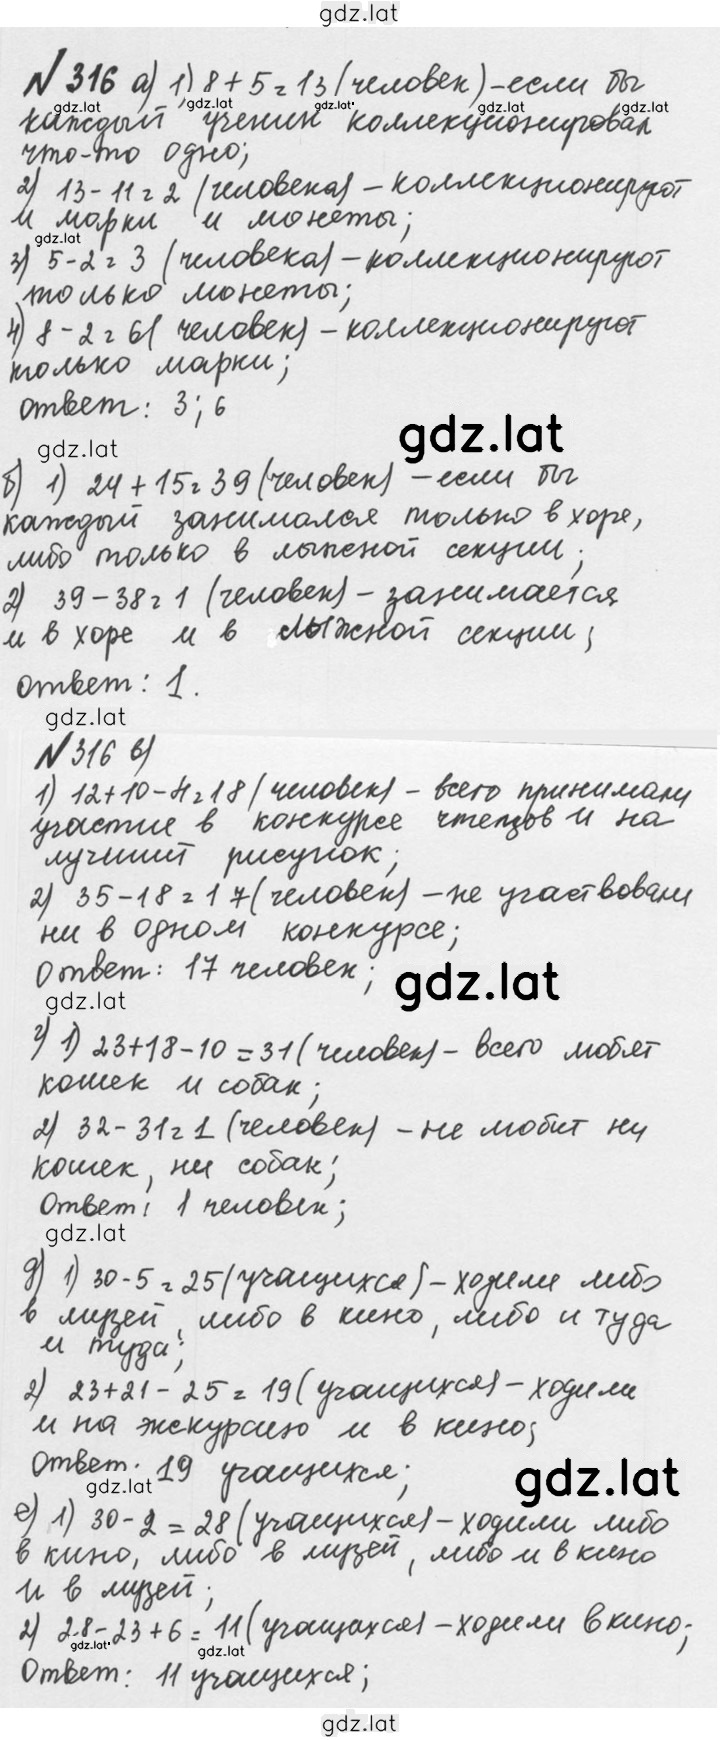 gdz.lat
№316 а) 1) 8 + 5 = 13 (человек) – если бы
gdz.lat gdz.lat gdz.lat gdz.lat
каждый ученик коллекционировал
что-то одно;
2) 13 - 11 = 2 (человека) – коллекционируют
и марки и монеты;
gdz.lat
3) 5 - 2 = 3 (человека) – коллекционируют
только монеты;
4) 8 - 2 = 6 (человек) – коллекционируют
только марки;
ответ: 3; 6
gdz.lat
gdz.lat
б) 1) 24 + 15 = 39 (человек) – если бы
каждый занимался только в хоре,
либо только в лыжной секции;
2) 39 - 38 = 1 (человек) – занимается
и в хоре и в лыжной секции;
ответ: 1.
gdz.lat
№316 в)
1) 12+10-4=18 (человек) – всего принимали
участие в конкурсе чтецов и на
лучший рисунок;
2) 35-18 = 17 (человек) – не участвовали
ни в одном конкурсе;
Ответ: 17 человек;
gdz.lat
gdz.lat
г) 1) 23+18-10 = 31 (человек) – всего любят
кошек и собак;
2) 32 - 31 = 1 (человек) – не любит ни
кошек, ни собак;
Ответ: 1 человек;
gdz.lat
д) 1) 30-5 = 25 (учащихся) – ходили либо
в музей, либо в кино, либо и туда
и туда;
2) 23+21-25 = 19 (учащихся) – ходили
и на экскурсию и в кино;
Ответ. 19 учащихся;
gdz.lat
gdz.lat
е) 1) 30-2 = 28 (учащихся) – ходили либо
в кино, либо в музей, либо и в кино
и в музей;
2) 28-23+6 = 11 (учащахся) – ходили в кино;
gdz.lat gdz.lat
Ответ: 11 учащихся;
gdz.lat